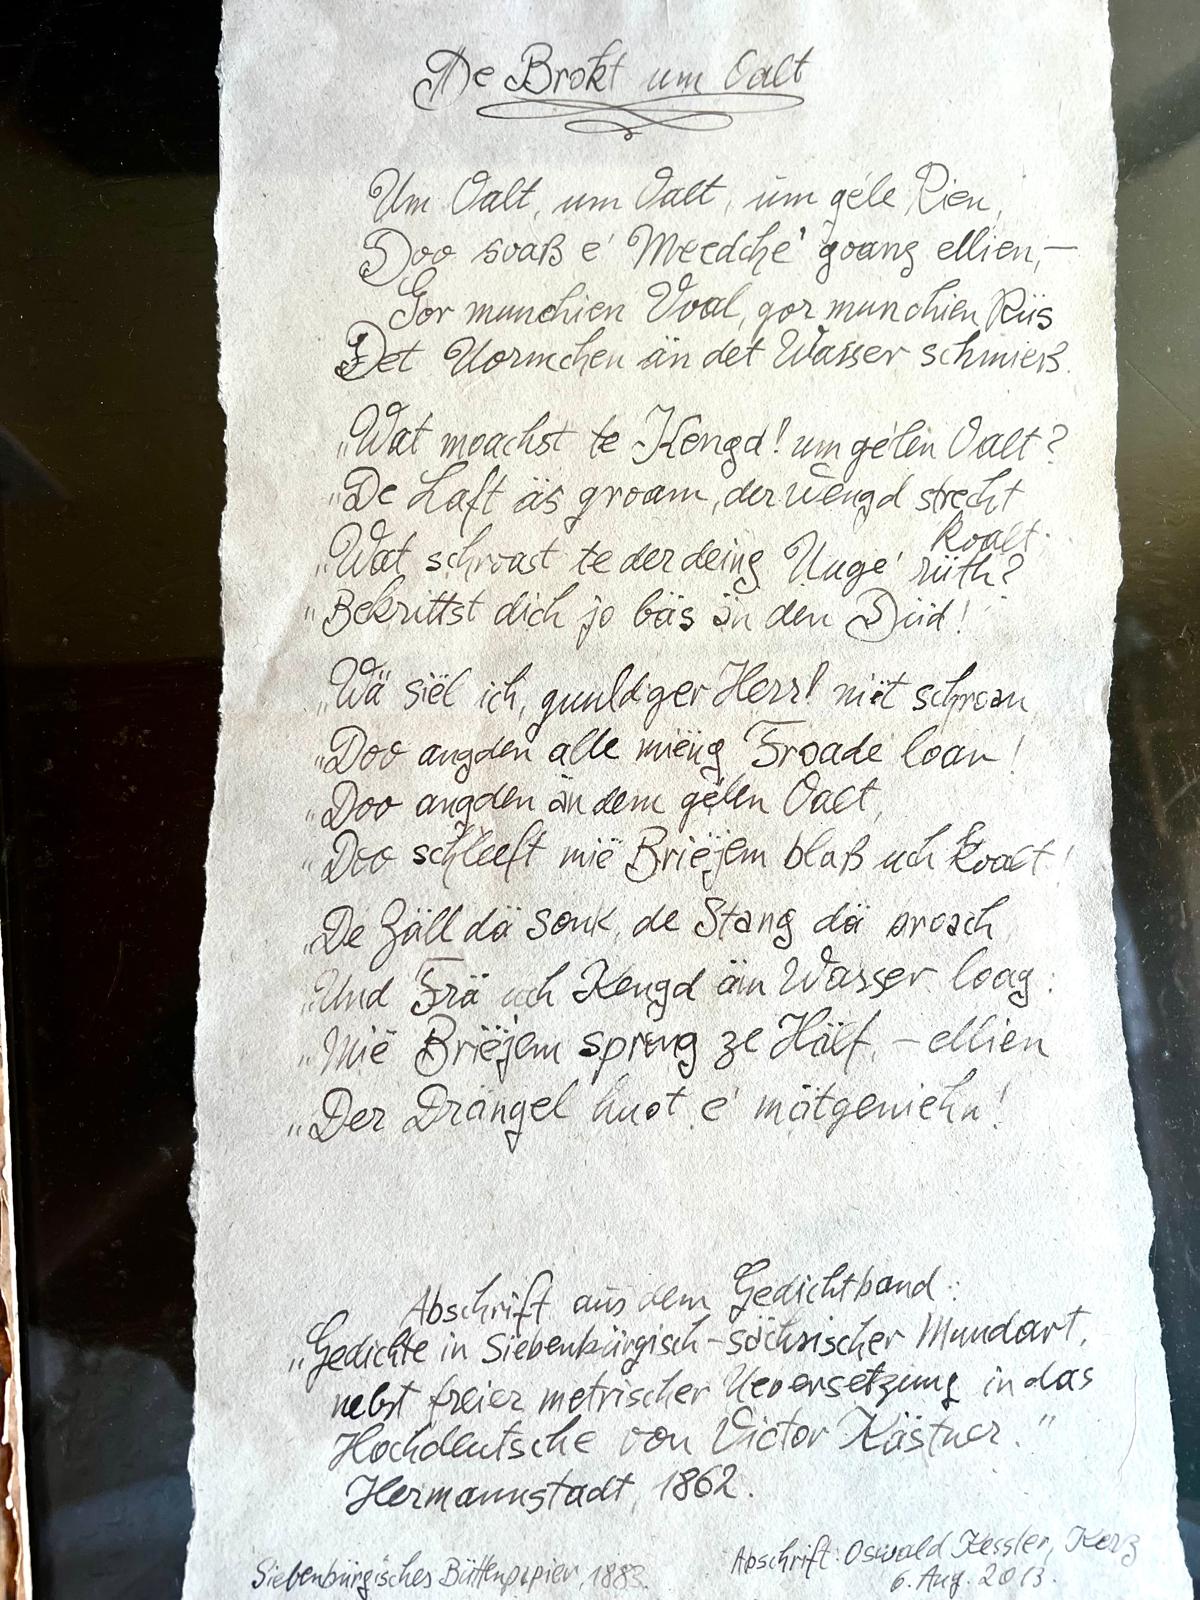 De Brokt um Oalt
Um Oalt, um Oalt, um géle Rien,
Doo soaß e' Meedche' goanz ellien;—
Gor munchien Voal, gor munchien Riis
Det Uormchen än det Wasser schmieß.
„Wat moachst te Kengd! um gélen Oalt?
„De Laft äs groam, der Wengd strecht
koalt.
„Wat schroast te der deing Uuge' rüth?
„Bekrittst dich jo bäs än den Düd!
„Wä siël ich, guuldiger Herr! niët schroan
„Doo angden alle mieng Froade loan!
„Doo angden än dem gélen Oalt,
„Doo schleeft mië Briëjem blaß uch koalt!
„De Zäll dä sonk, de Stang dä broach
„Und Frä uch Kengd äm Wasser loag:
„Mië Briëjem spreng ze Hälf, – ellien
„Der Drängel huot e' mätgeniehn!
Abschrift aus dem Gedichtband:
„Gedichte in Siebenbürgisch-sächsischer Mundart,
nebst freier metrischer Uebersetzung in das
Hochdeutsche von Victor Kästner."
Hermannstadt, 1862.
Abschrift: Oswald Kessler, Kerz
6. Aug. 2013.
Siebenbürgisches Büttenpapier, 1883.